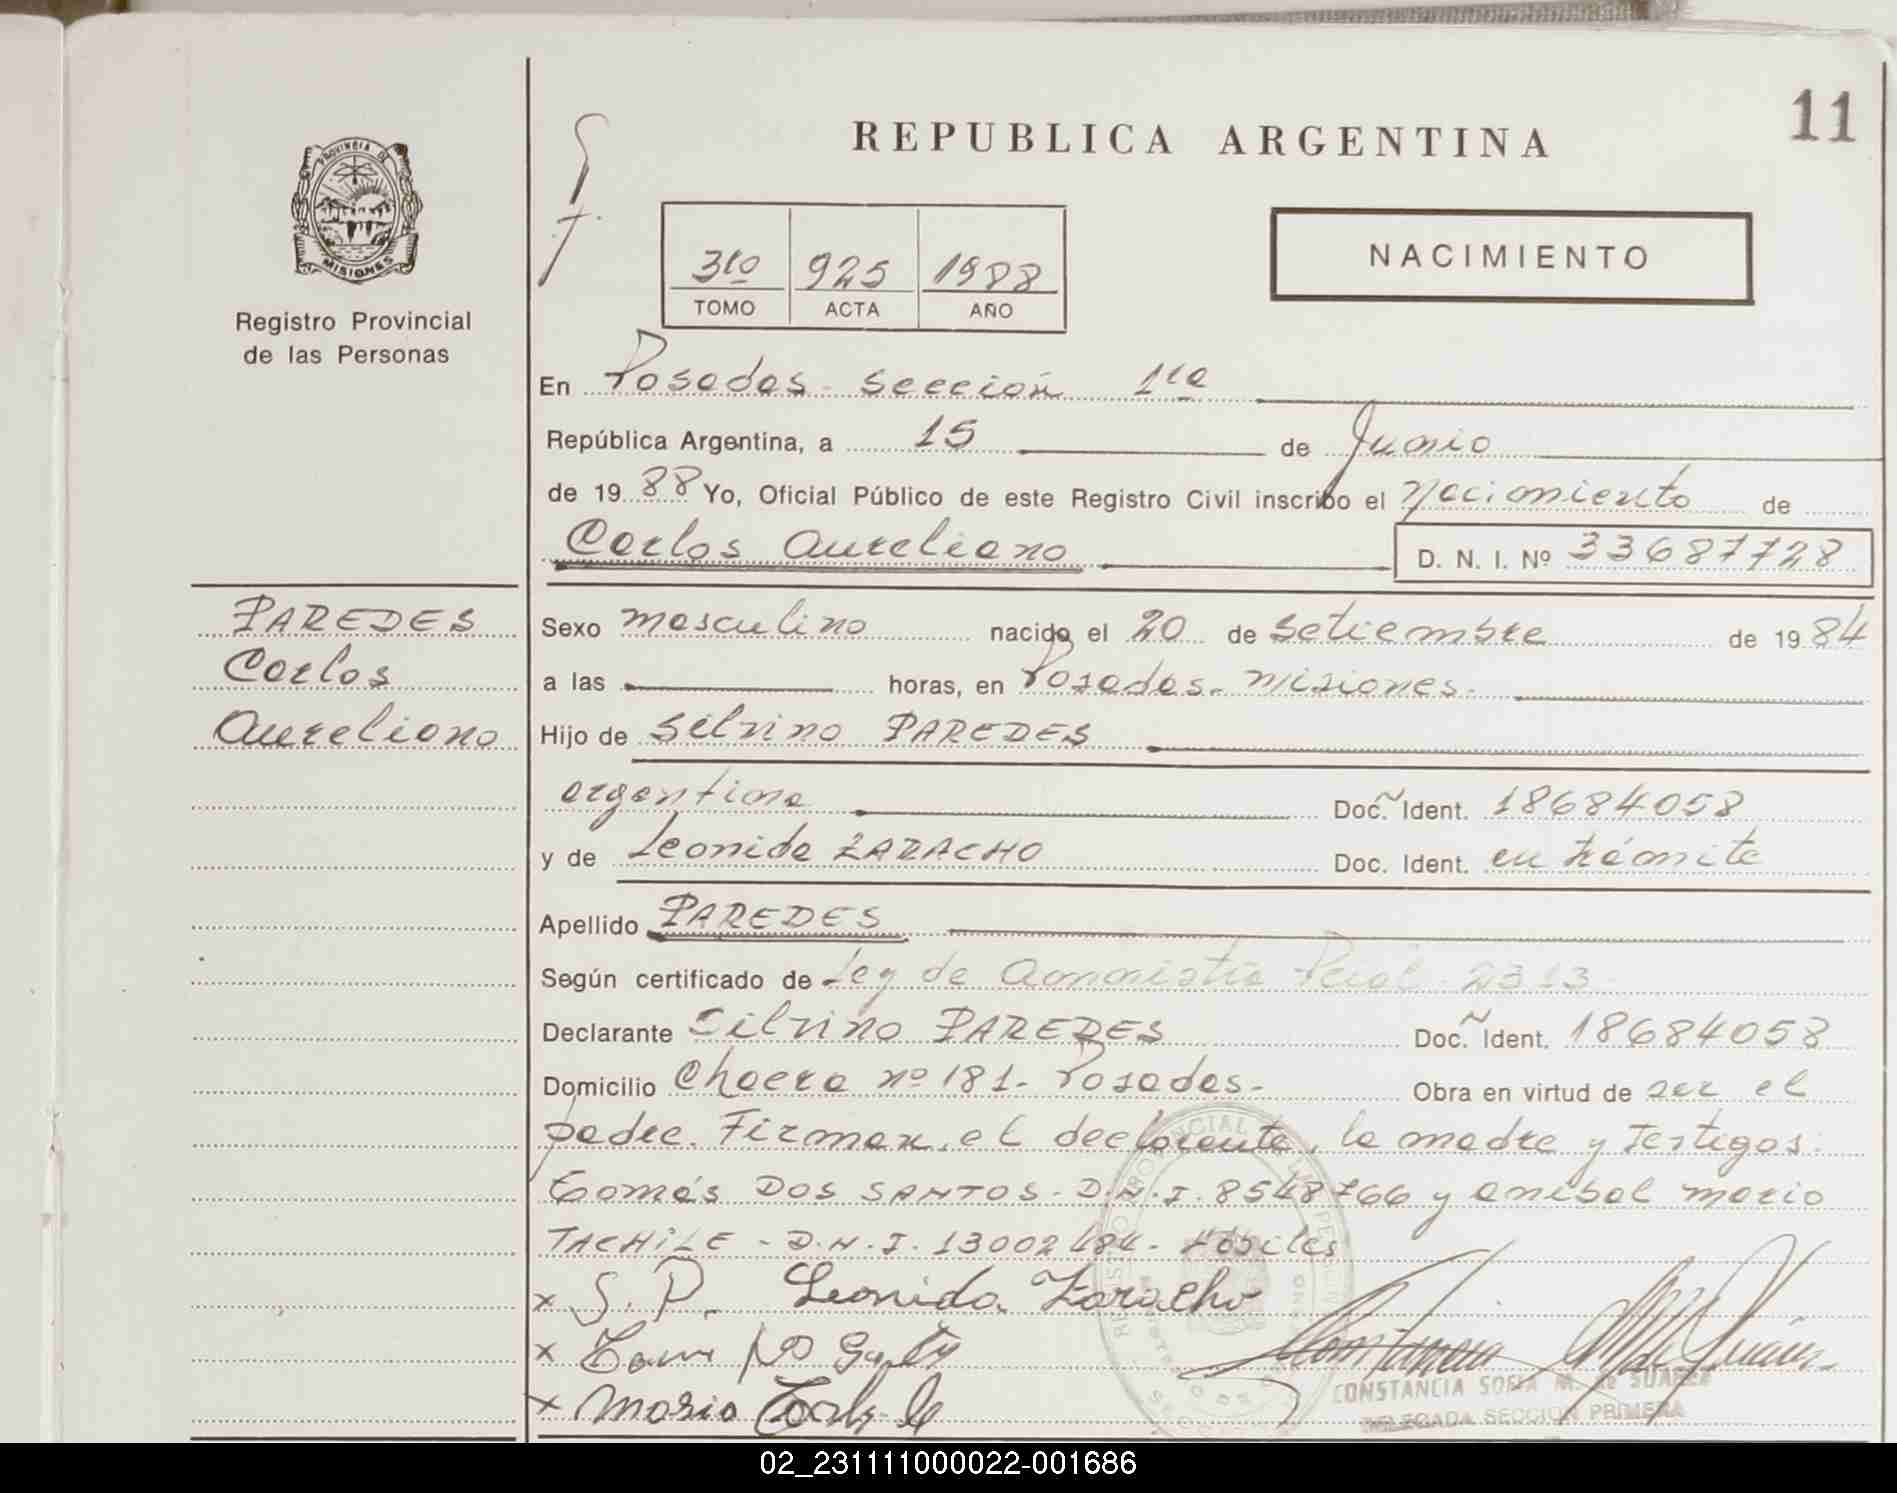 11
REPUBLICA ARGENTINA
PROVINCIA DE
MISIONES
Registro Provincial
de las Personas
3ro 925 1988
TOMO ACTA AÑO
NACIMIENTO
En Posadas - sección 1ra
República Argentina, a 15 de Junio
de 1988 Yo, Oficial Público de este Registro Civil inscribo el Nacimiento de
Carlos Aureliano D. N. I. Nº 33687728
PAREDES
Carlos
Aureliano
Sexo masculino nacido el 20 de setiembre de 1984
a las horas, en Posadas - Misiones -
Hijo de Silvino PAREDES
argentina Doc. Ident. 18684058
y de Leonida ZARACHO Doc. Ident. en trámite
Apellido PAREDES
Según certificado de Ley de Amnistía 2313
Declarante Silvino PAREDES Doc. Ident. 18684058
Domicilio Chacra nº 181 - Posadas - Obra en virtud de ser el
padre. Firman, el declarante, la madre y Testigos:
Tomás DOS SANTOS - D.N.I. 8548766 y Anibal Mario
TACHILE - D.N.I. 13002484 - Hábiles
x S. P. Leonida Zaracho
x
x Mario
CONSTANCIA SOFIA M. de SUAREZ
DELEGADA SECCION PRIMERA
02_231111000022-001686